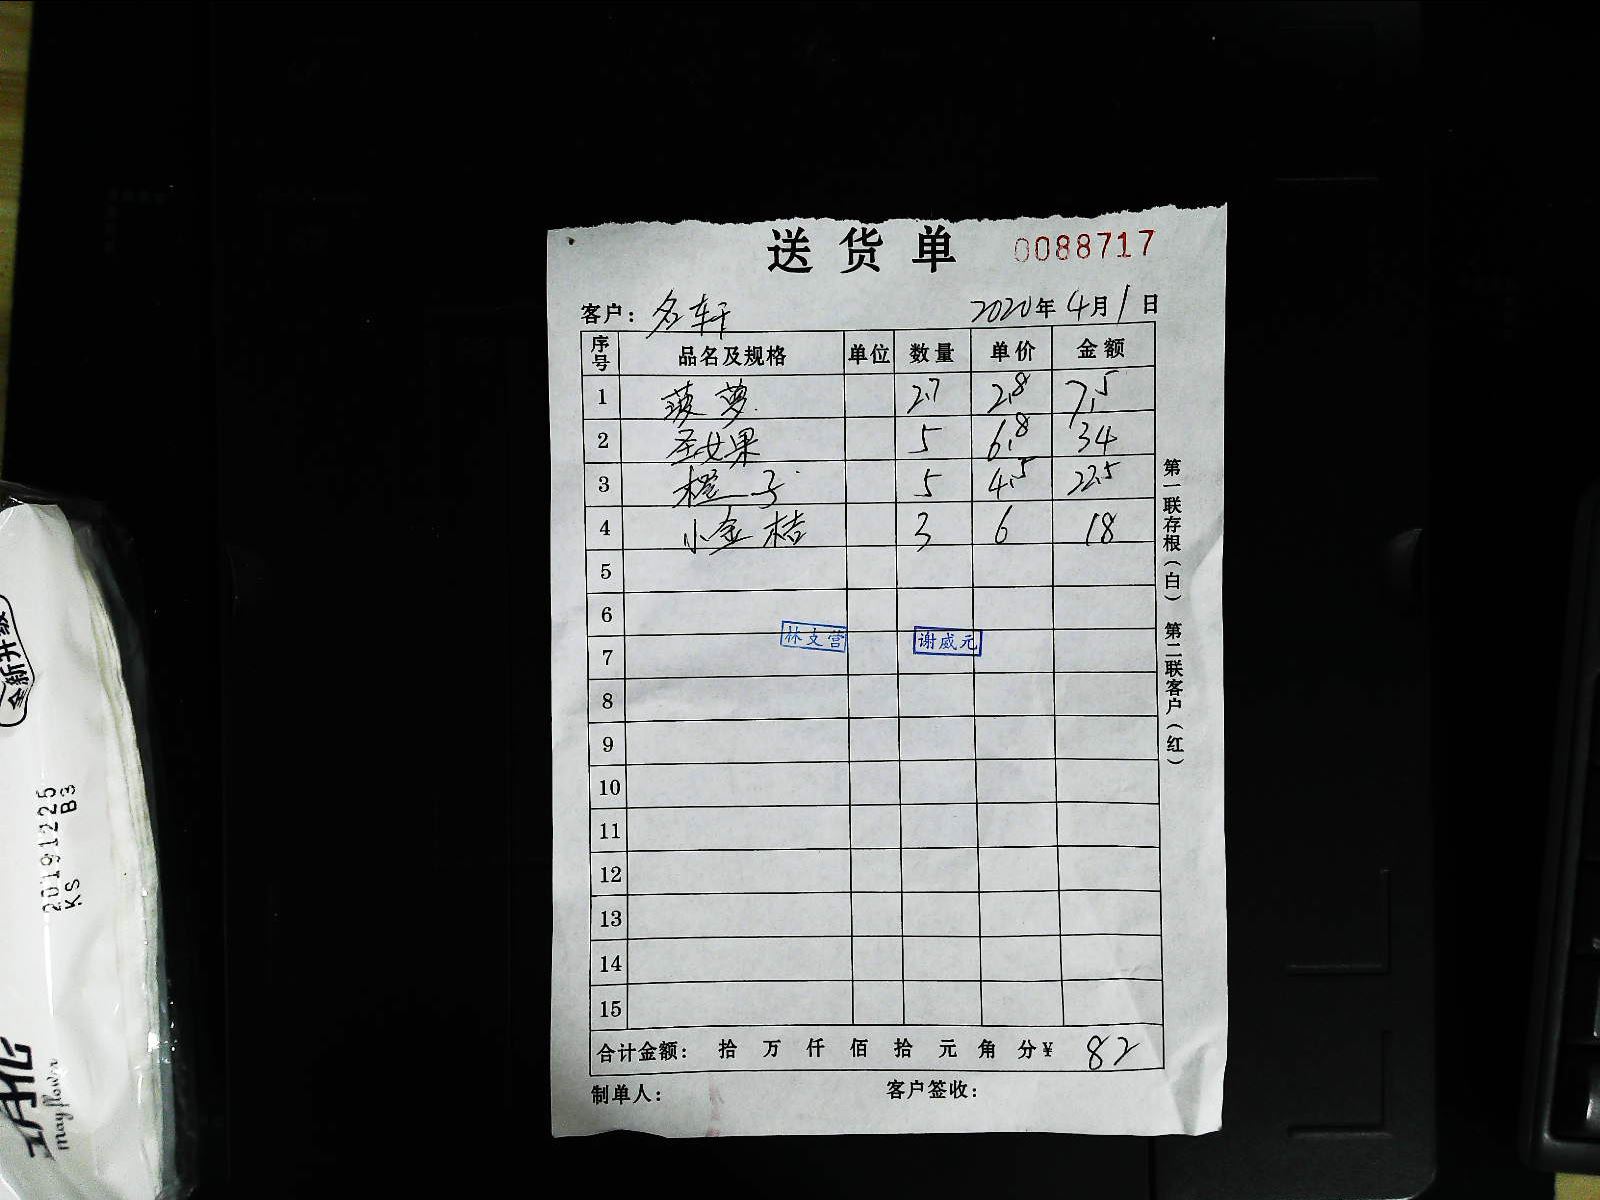 送货单 0088717
客户：名轩 2020年4月1日
序号 品名及规格 单位 数量 单价 金额
1 菠萝 2.7 2.8 7.5
2 圣女果 5 6.8 34
3 橙子 5 4.5 22.5
4 小金桔 3 6 18
5
6
7
林支营 谢威元
8
9
10
11
12
13
14
15
合计金额： 拾 万 仟 佰 拾 元 角 分¥ 82
制单人： 客户签收：
第一联存根（白） 第二联客户（红）
全新升级
20191225
KS B3
May flower